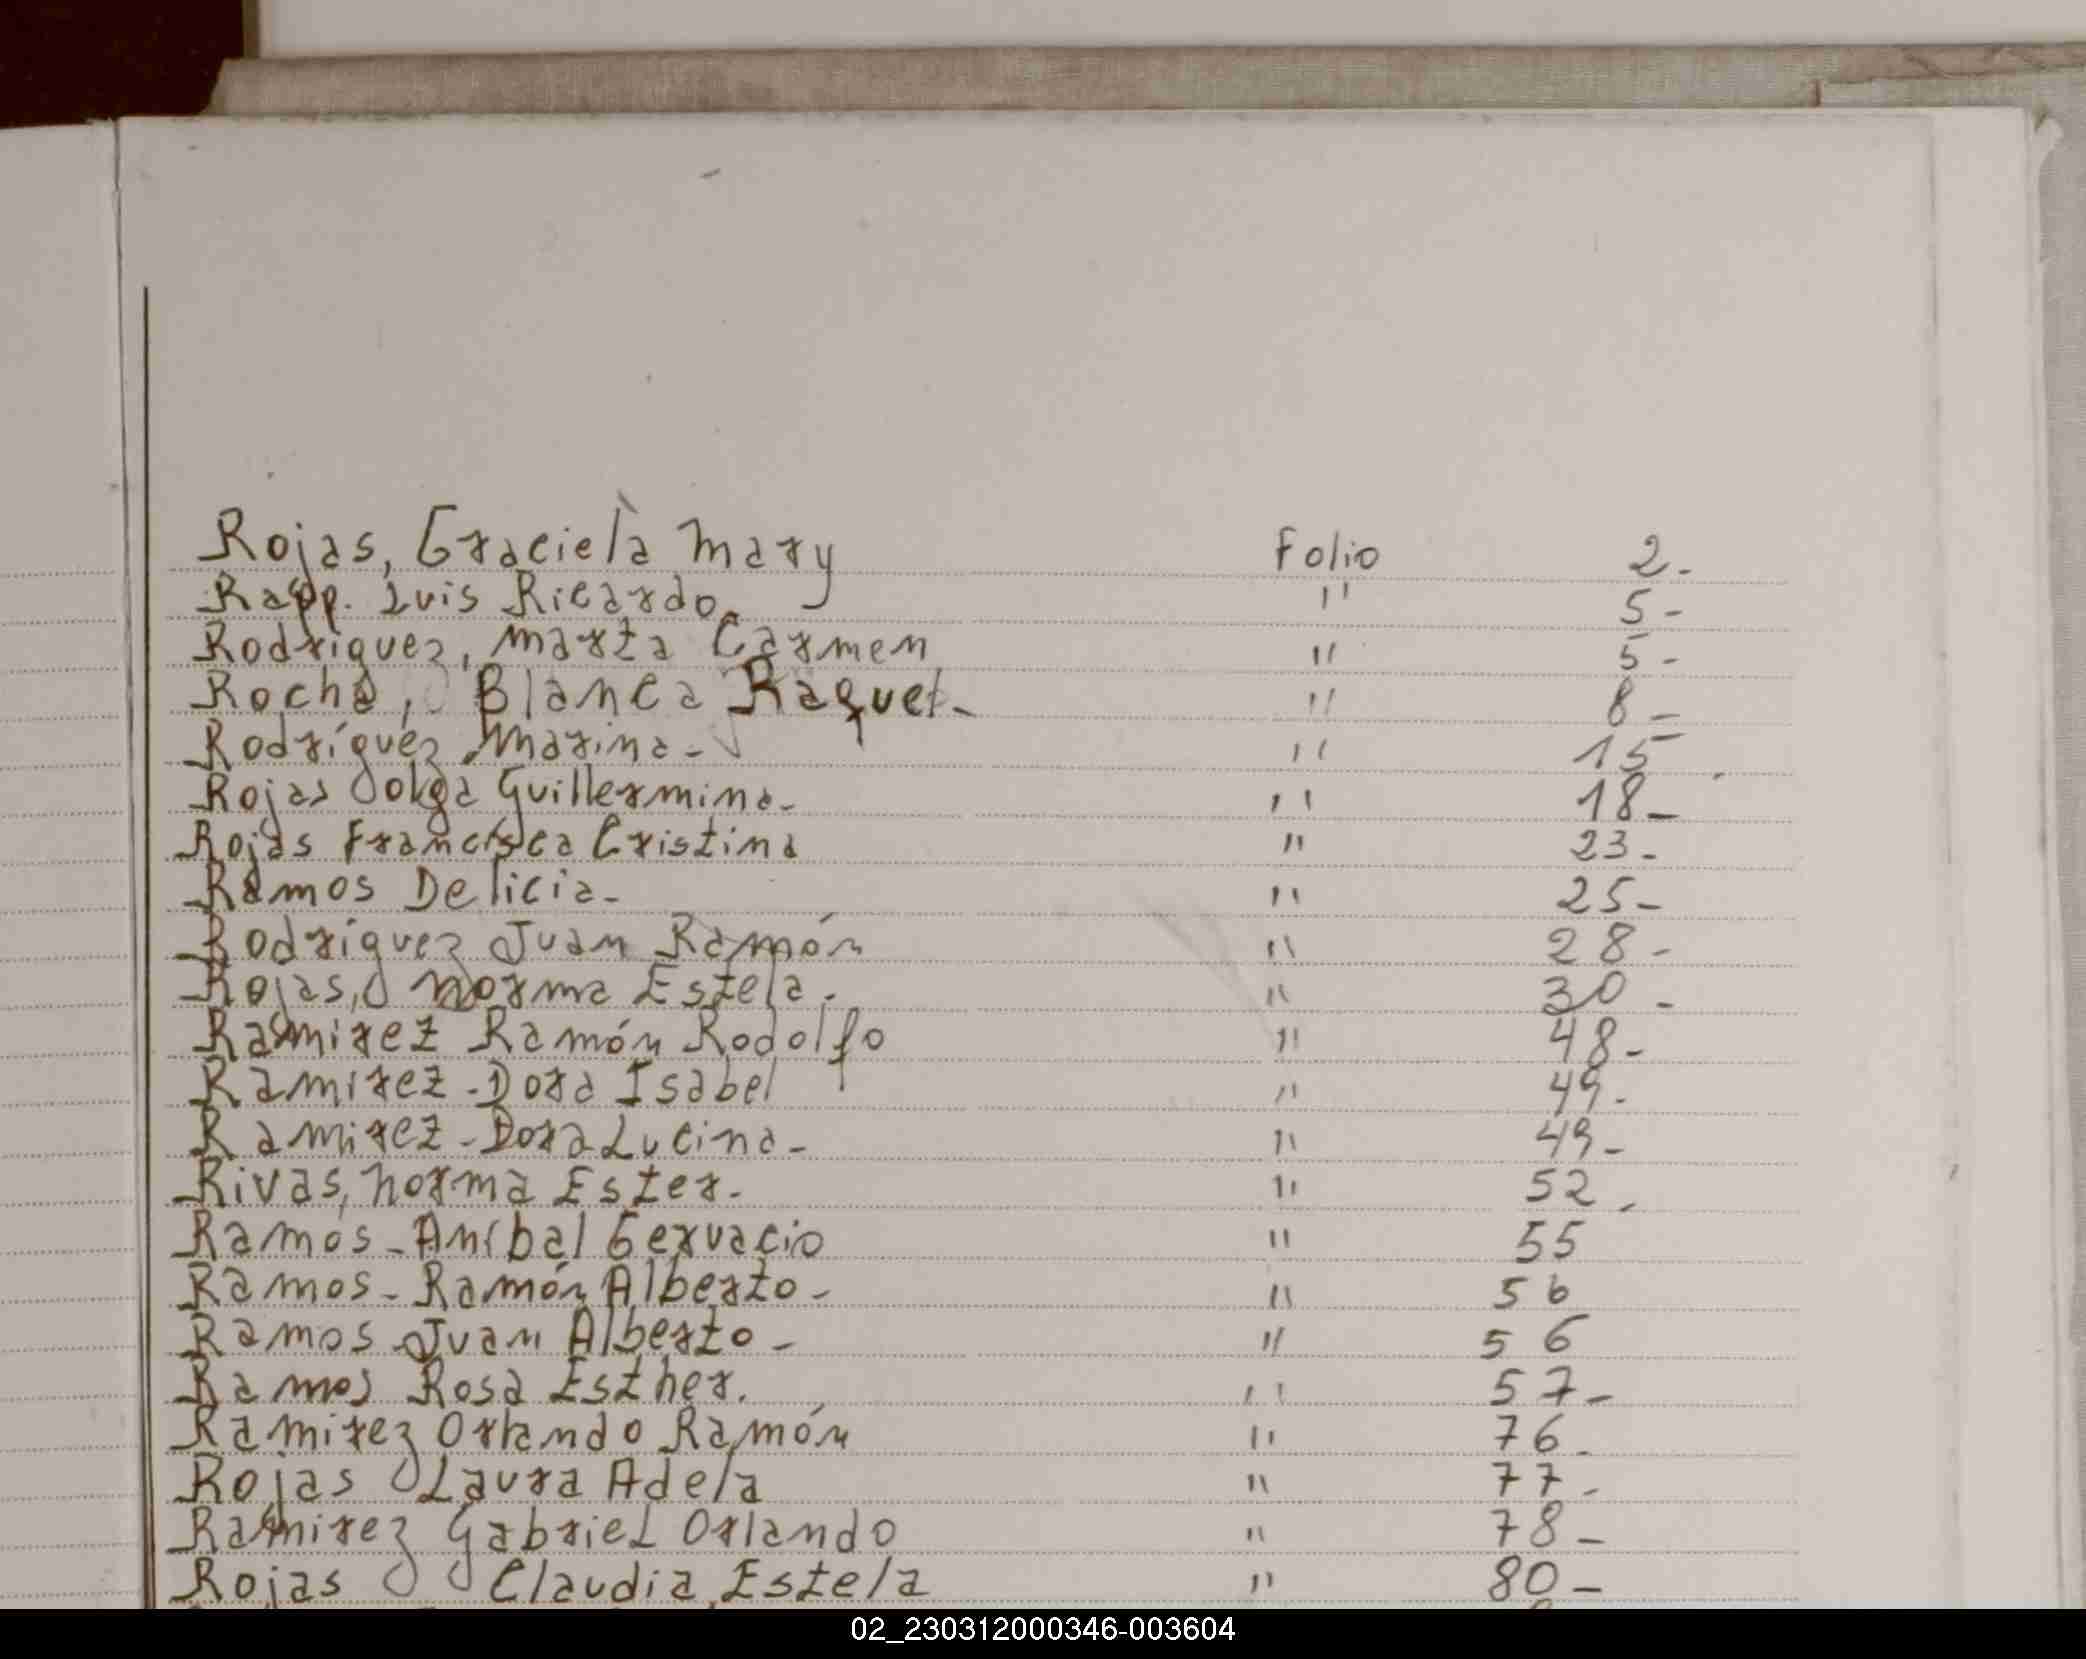 Rojas, Graciela Mary Folio 2.
Rapp. Luis Ricardo. " 5-
Rodriguez, Marta Carmen " 5-
Rocha, Blanca Raquel- " 8-
Rodríguez Marina- " 15-
Rojas Olga Guillermina- " 18-
Rojas Francisca Cristina " 23-
Ramos Delicia- " 25-
Rodriguez Juan Ramón " 28-
Rojas, Norma Estela. " 30-
Ramirez Ramón Rodolfo " 48-
Ramirez-Dora Isabel " 49-
Ramirez-Dora Lucina- " 49-
Rivas, Norma Ester- " 52-
Ramos-Aníbal Gervacio " 55
Ramos-Ramón Alberto- " 56
Ramos Juan Alberto- " 56
Ramos Rosa Esther. " 57-
Ramirez Orlando Ramón " 76-
Rojas Laura Adela " 77-
Ramirez Gabriel Orlando " 78-
Rojas Claudia Estela " 80-
02_230312000346-003604